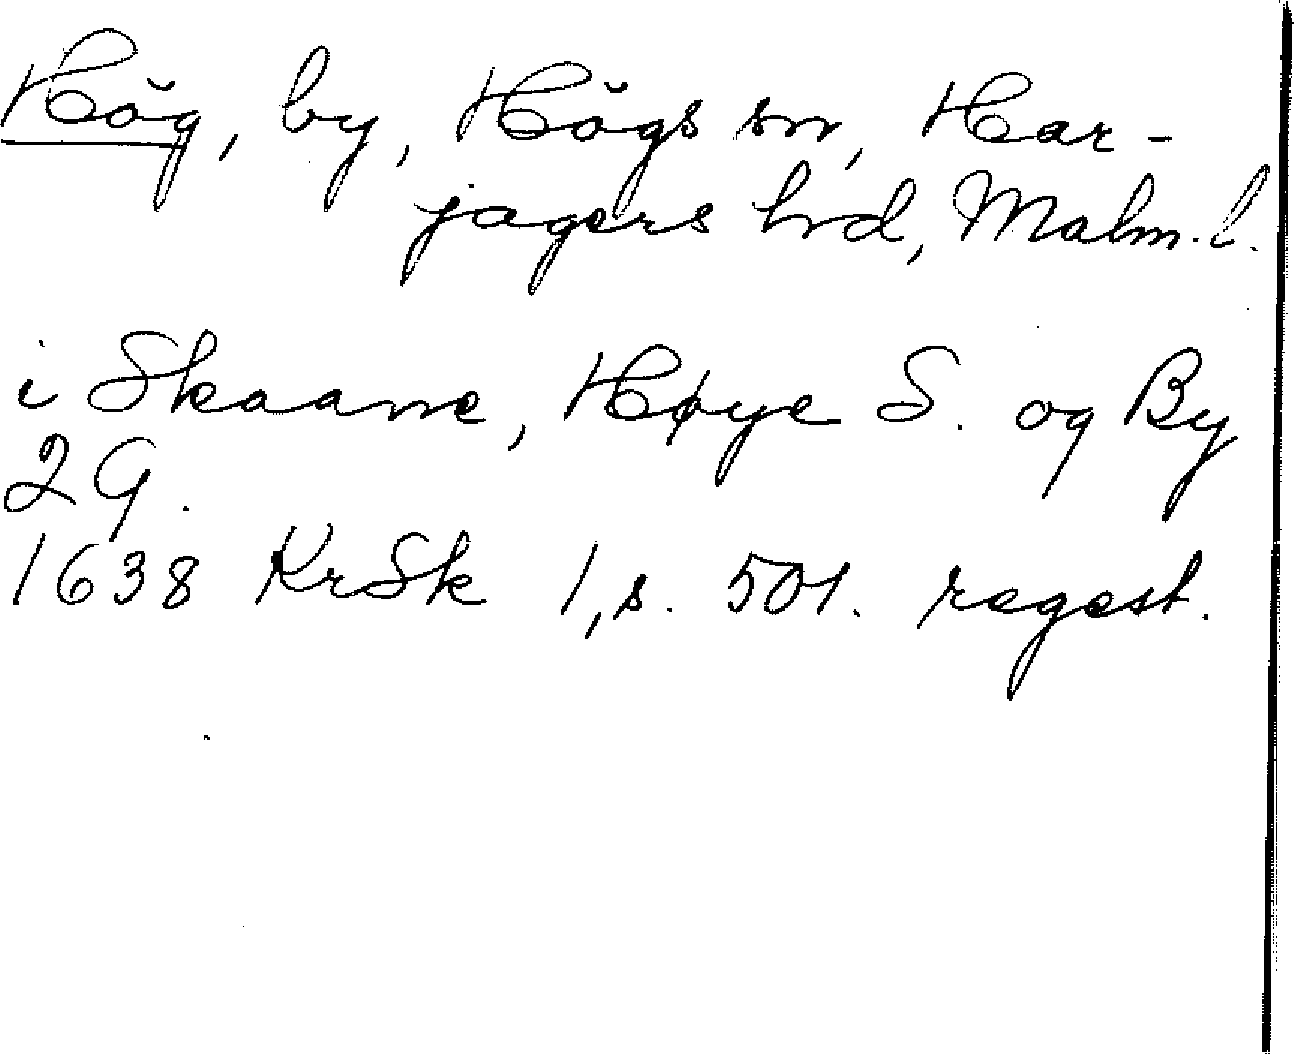 Hög, by, Högs sn, Har-
jagers hrd, Malm. l.
i Skaane, Høye S. og By
2 G.
1638 KrSk 1, s. 501. regest.